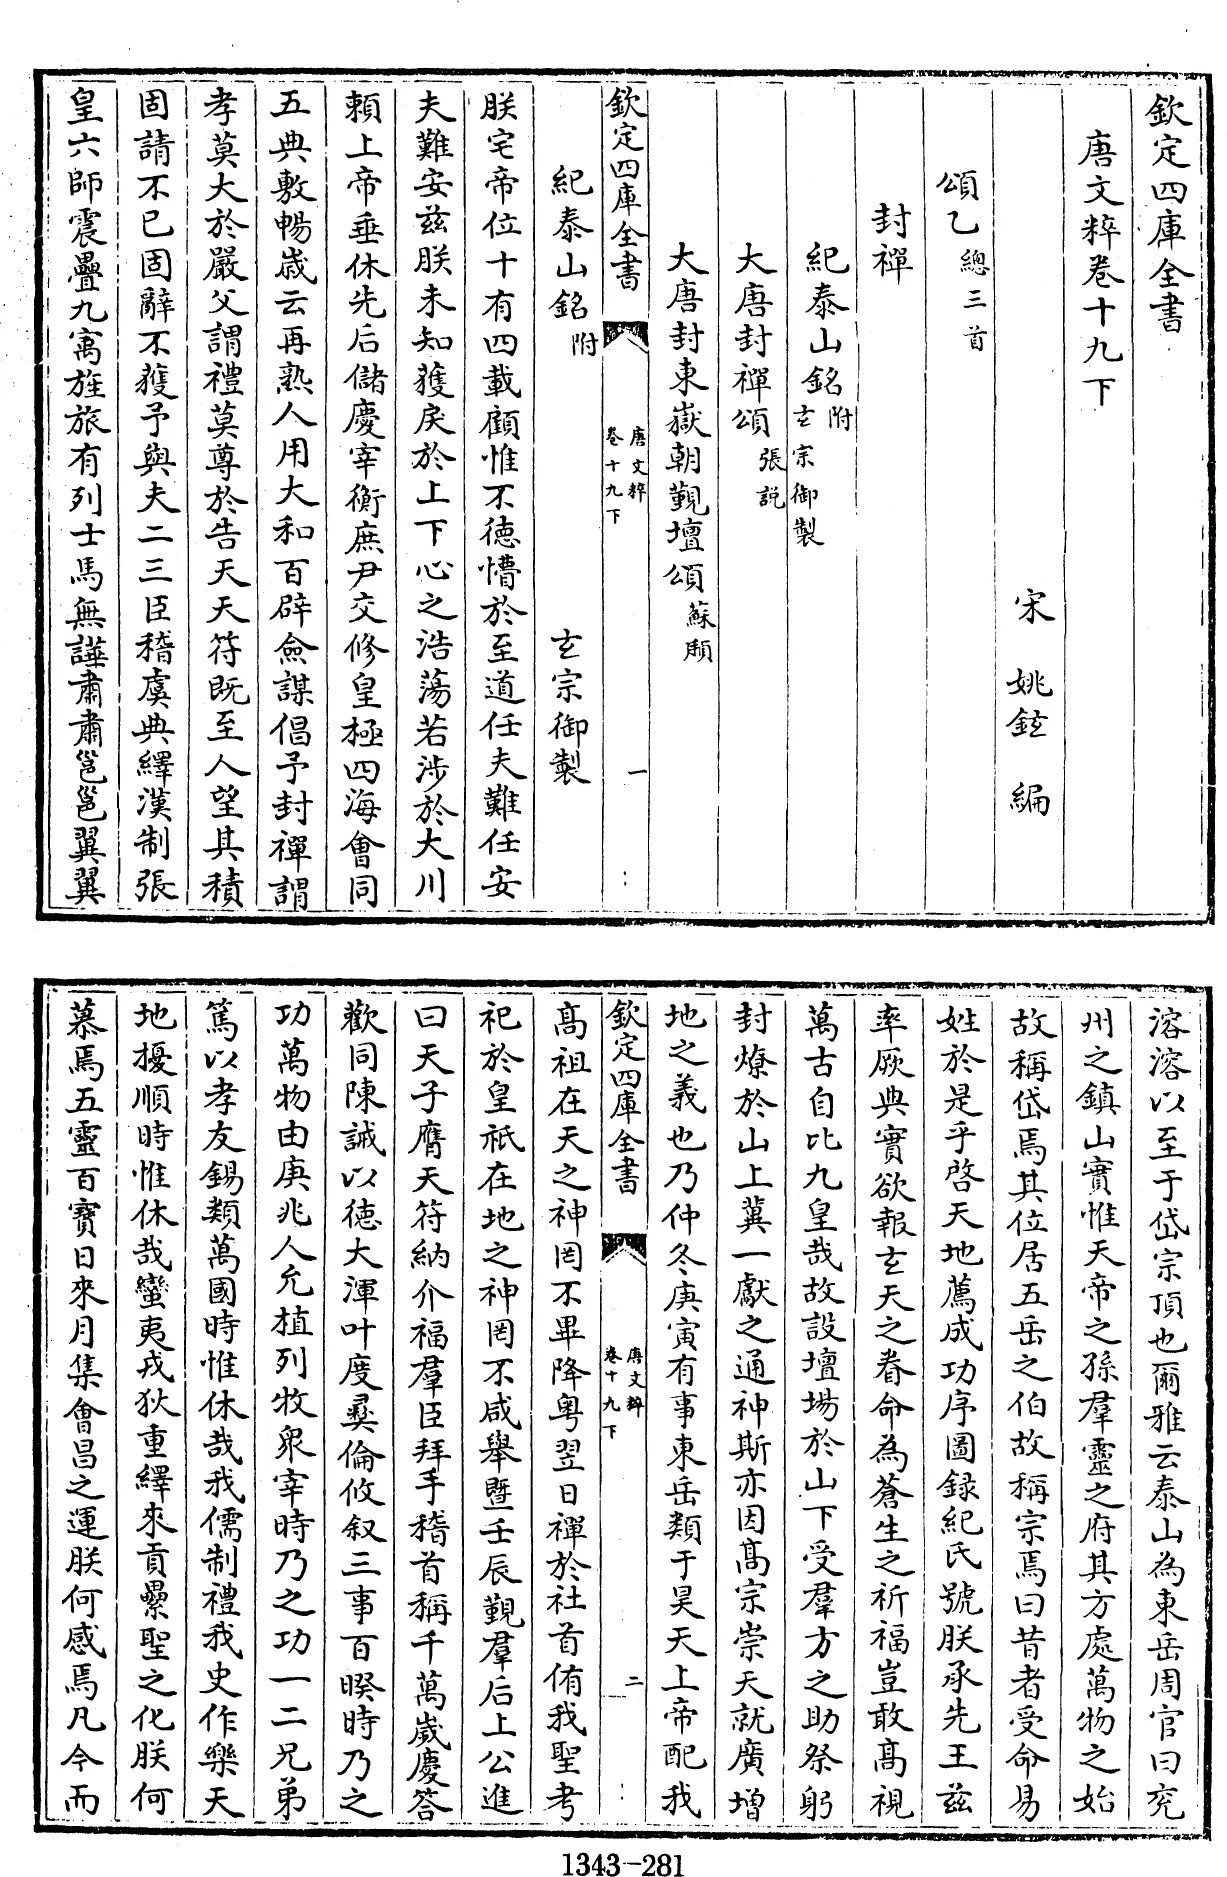 欽定四庫全書
唐文粹卷十九下
宋 姚鉉 編
頌乙 總三首
封禪
紀泰山銘附 玄宗御製
大唐封禪頌 張説
大唐封東嶽朝覲壇頌 蘇頲
欽定四庫全書 唐文粹 卷十九下 一
紀泰山銘附 玄宗御製
朕宅帝位十有四載顧惟不德懵於至道任夫難任安
夫難安兹朕未知獲戾於上下心之浩蕩若涉於大川
賴上帝垂休先后儲慶宰衡庶尹交修皇極四海會同
五典敷暢歲云再熟人用大和百辟僉謀倡予封禪謂
孝莫大於嚴父謂禮莫尊於告天天符既至人望其積
固請不已固辭不獲予與夫二三臣稽虞典繹漢制張
皇六師震疊九寓旌旅有列士馬無譁肅肅邕邕翼翼
溶溶以至于岱宗頂也爾雅云泰山為東岳周官曰兖
州之鎮山實惟天帝之孫羣靈之府其方處萬物之始
故稱岱焉其位居五岳之伯故稱宗焉曰昔者受命易
姓於是乎啓天地薦成功序圖録紀氏號朕承先王兹
率厥典實欲報玄天之眷命為蒼生之祈福豈敢髙視
萬古自比九皇哉故設壇場於山下受羣方之助祭躬
封燎於山上冀一獻之通神斯亦因髙宗崇天就廣增
地之義也乃仲冬庚寅有事東岳類于昊天上帝配我
欽定四庫全書 唐文粹 卷十九下 二
髙祖在天之神罔不畢降粤翌日禪於社首侑我聖考
祀於皇祇在地之神罔不咸舉暨壬辰覲羣后上公進
曰天子膺天符納介福羣臣拜手稽首稱千萬嵗慶答
歡同陳誡以德大渾叶度彛倫攸叙三事百揆時乃之
功萬物由庚兆人允植列牧衆宰時乃之功一二兄弟
篤以孝友錫類萬國時惟休哉我儒制禮我史作樂天
地擾順時惟休哉蠻夷戎狄重繹來貢纍聖之化朕何
慕焉五靈百寳日來月集會昌之運朕何感焉凡今而
1343-281